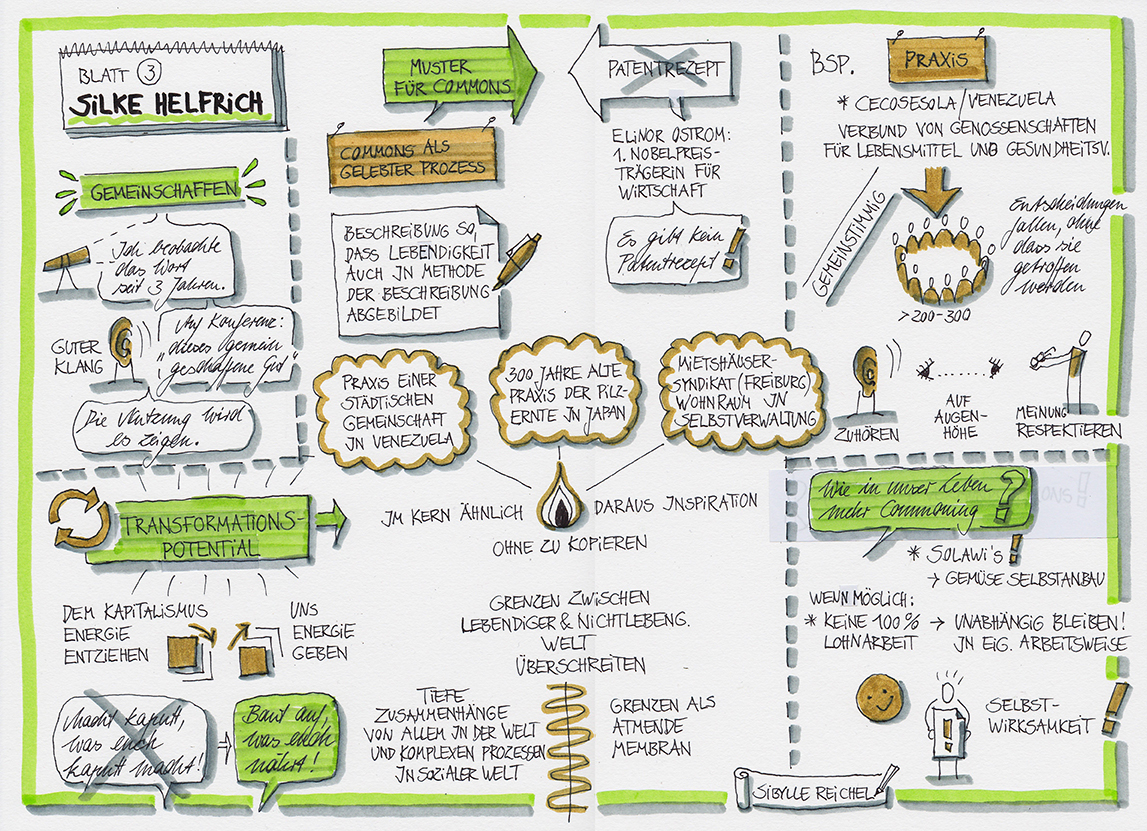 BLATT 3
SILKE HELFRICH
GEMEINSCHAFFEN
Ich beobachte
das Wort
seit 3 Jahren.
GUTER
KLANG
Auf Konferenz:
"dieses gemein
geschaffene Gut"
Die Nutzung wird
es zeigen.
MUSTER
FÜR COMMONS
COMMONS ALS
GELEBTER PROZESS
BESCHREIBUNG SO,
DASS LEBENDIGKEIT
AUCH IN METHODE
DER BESCHREIBUNG
ABGEBILDET
PATENTREZEPT
ELINOR OSTROM:
1. NOBELPREIS-
TRÄGERIN FÜR
WIRTSCHAFT
Es gibt kein
Patentrezept!
PRAXIS EINER
STÄDTISCHEN
GEMEINSCHAFT
IN VENEZUELA
300 JAHRE ALTE
PRAXIS DER PILZ-
ERNTE IN JAPAN
MIETSHÄUSER-
SYNDIKAT (FREIBURG)
WOHNRAUM IN
SELBSTVERWALTUNG
IM KERN ÄHNLICH
DARAUS INSPIRATION
OHNE ZU KOPIEREN
GRENZEN ZWISCHEN
LEBENDIGER & NICHTLEBENG.
WELT
ÜBERSCHREITEN
TIEFE
ZUSAMMENHÄNGE
VON ALLEM IN DER WELT
UND KOMPLEXEN PROZESSEN
IN SOZIALER WELT
GRENZEN ALS
ATMENDE
MEMBRAN
BSP. PRAXIS
* CECOSESOLA/VENEZUELA
VERBUND VON GENOSSENSCHAFTEN
FÜR LEBENSMITTEL UND GESUNDHEITSV.
GEMEINSTIMMIG
Entscheidungen
fällen, ohne
dass sie
getroffen
werden
>200-300
ZUHÖREN
AUF
AUGEN-
HÖHE
MEINUNG
RESPEKTIEREN
Wie in unser Leben
mehr Commoning?!
* SOLAWI's!
→ GEMÜSE SELBSTANBAU
WENN MÖGLICH:
* KEINE 100% → UNABHÄNGIG BLEIBEN!
LOHNARBEIT IN EIG. ARBEITSWEISE
SELBST-
WIRKSAMKEIT!
TRANSFORMATIONS-
POTENTIAL
DEM KAPITALISMUS
ENERGIE
ENTZIEHEN
UNS
ENERGIE
GEBEN
Macht kaputt,
was euch
kaputt macht!
Baut auf,
was euch
nährt!
SIBYLLE REICHEL